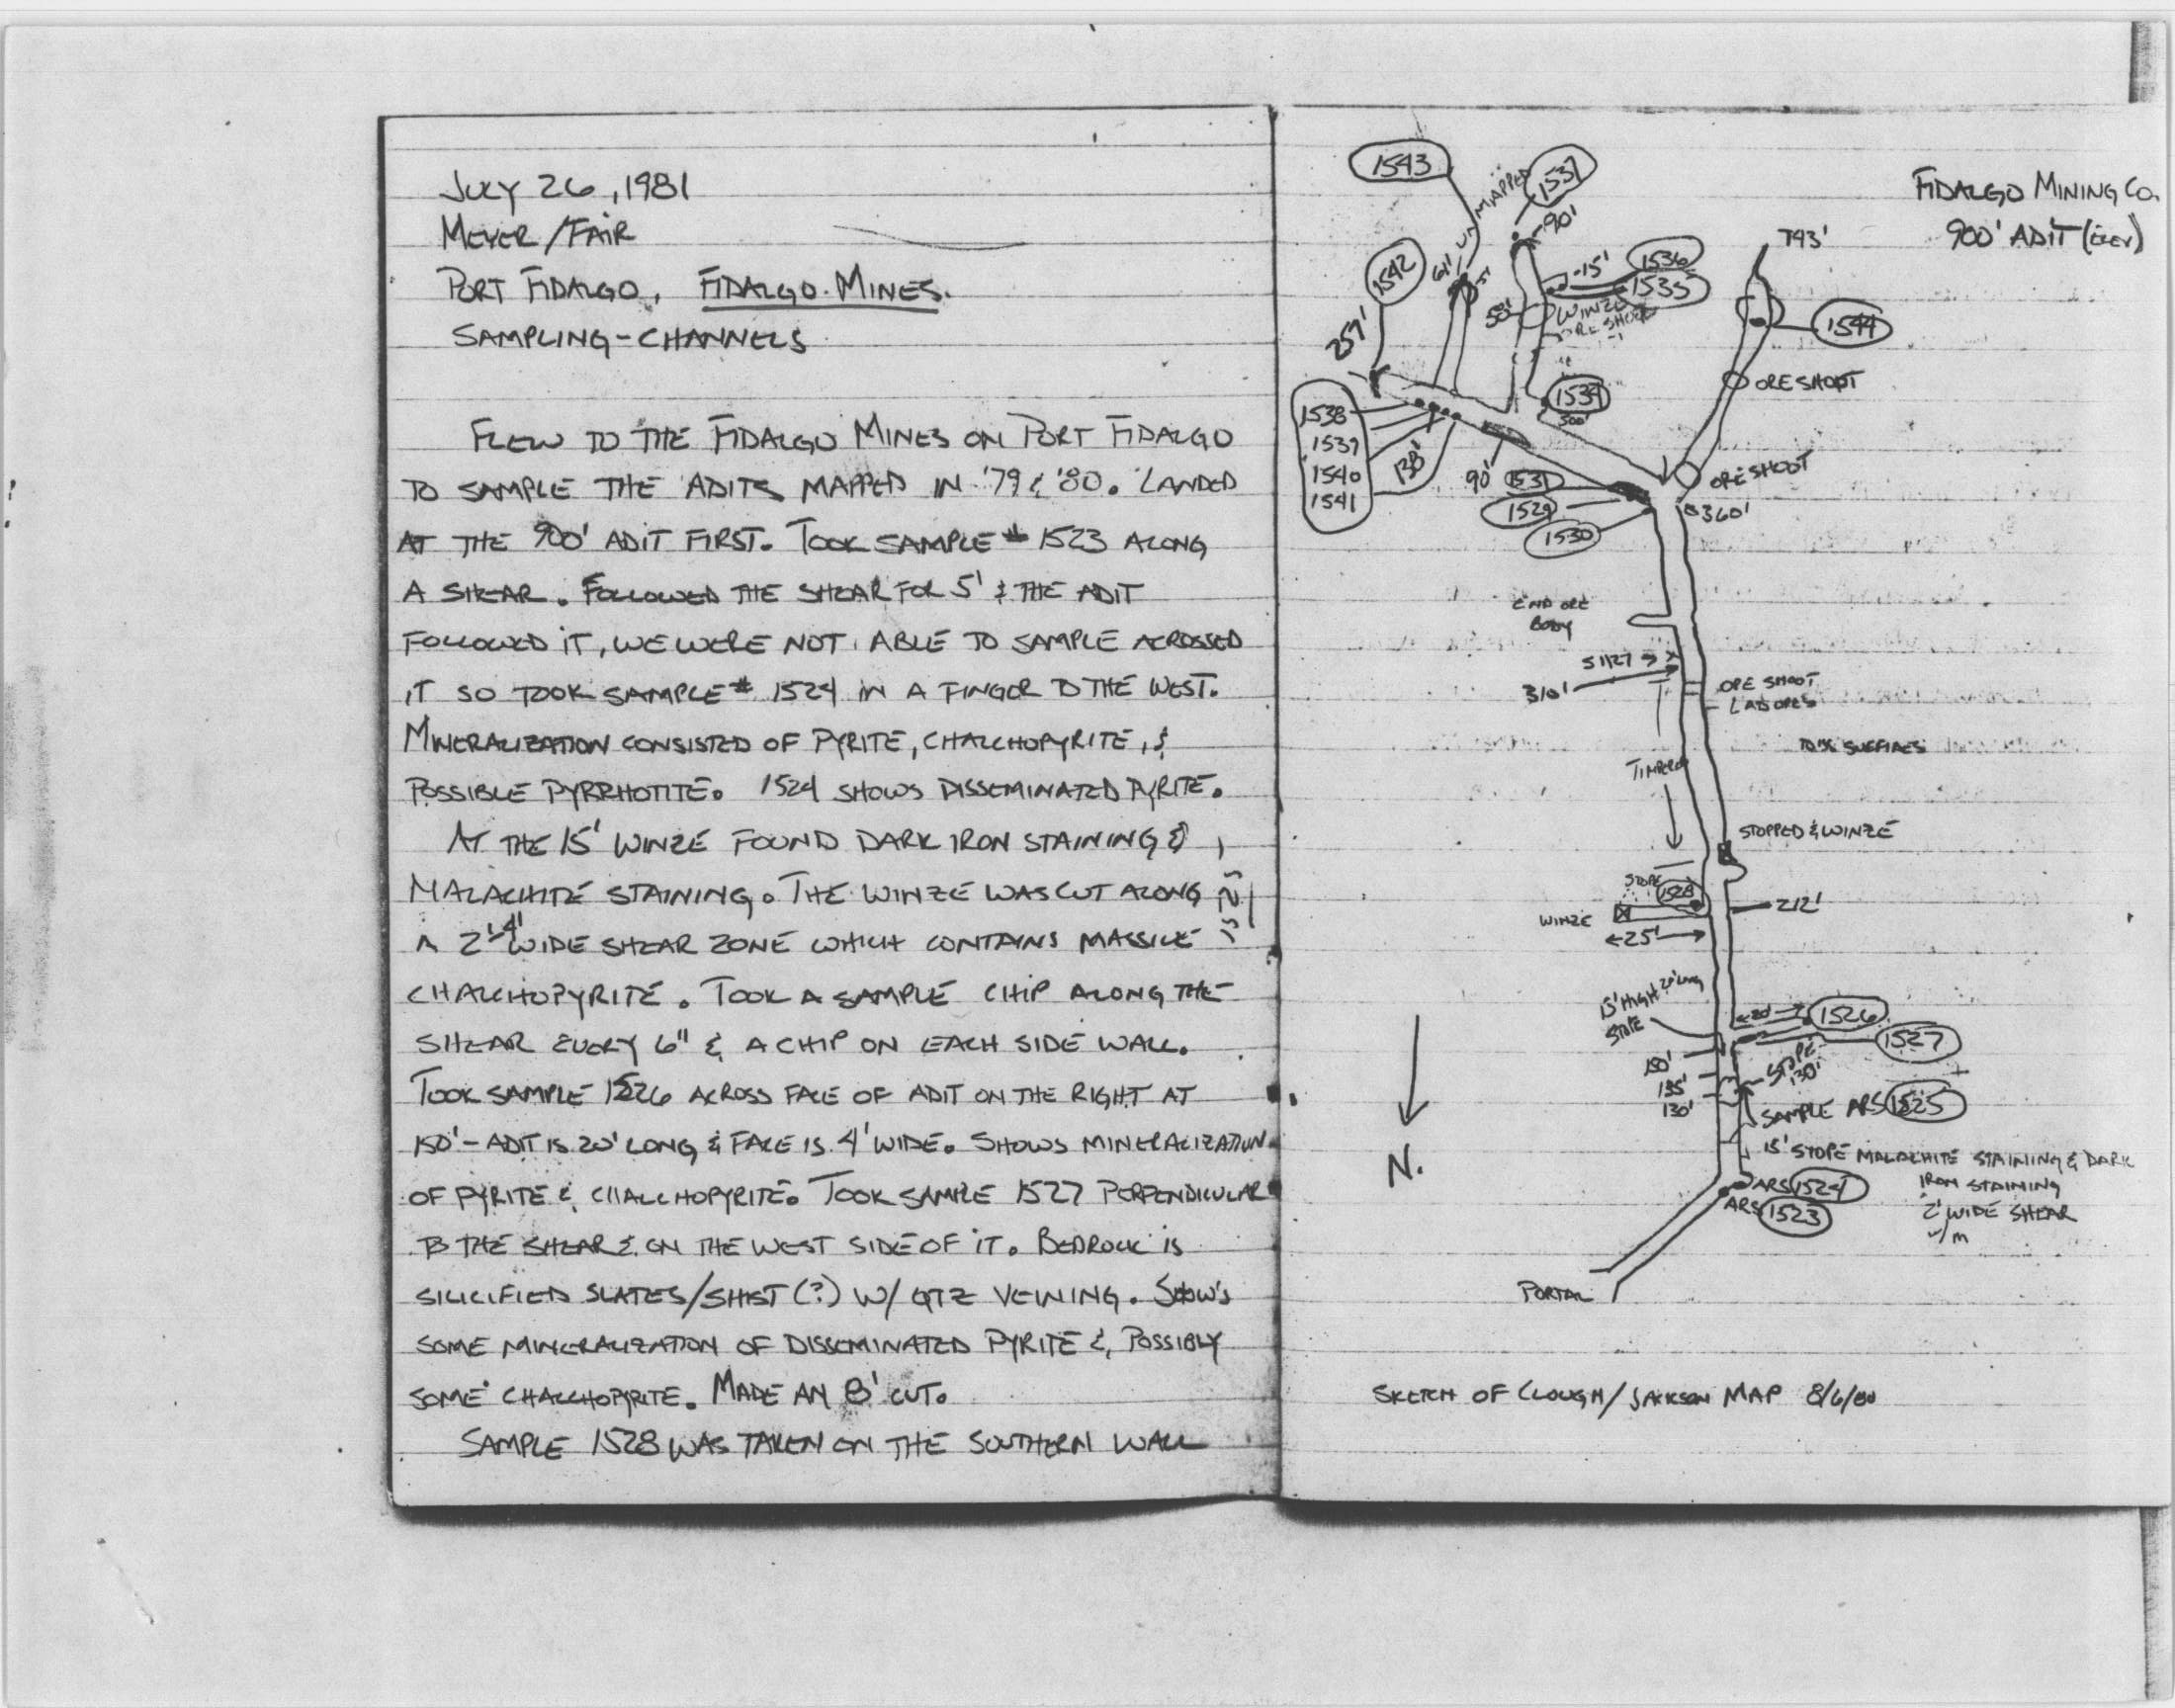 JULY 26, 1981
MEYER/FAIR
PORT FIDALGO, FIDALGO MINES.
SAMPLING-CHANNELS
FLEW TO THE FIDALGO MINES ON PORT FIDALGO
TO SAMPLE THE ADITS MAPPED IN '79 & '80. LANDED
AT THE 900' ADIT FIRST. TOOK SAMPLE # 1523 ALONG
A SHEAR. FOLLOWED THE SHEAR FOR 5' & THE ADIT
FOLLOWED IT, WE WERE NOT ABLE TO SAMPLE ACROSSED
IT SO TOOK SAMPLE # 1524 IN A FINGER TO THE WEST.
MINERALIZATION CONSISTED OF PYRITE, CHALCHOPYRITE, &
POSSIBLE PYRRHOTITE. 1524 SHOWS DISSEMINATED PYRITE.
AT THE 15' WINZE FOUND DARK IRON STAINING &
MALACHITE STAINING. THE WINZE WAS CUT ALONG
A 2'-4' WIDE SHEAR ZONE WHICH CONTAINS MASSIVE
1525
CHALCHOPYRITE. TOOK A SAMPLE CHIP ALONG THE
SHEAR EVERY 6" & A CHIP ON EACH SIDE WALL.
TOOK SAMPLE 1526 ACROSS FACE OF ADIT ON THE RIGHT AT
150'- ADIT IS 20' LONG & FACE IS 4' WIDE. SHOWS MINERALIZATION
OF PYRITE & CHALCHOPYRITE. TOOK SAMPLE 1527 PERPENDICULAR
TO THE SHEAR & ON THE WEST SIDE OF IT. BEDROCK IS
SILICIFIED SLATES/SHIST (?) W/ QTZ VEINING. SHOW'S
SOME MINERALIZATION OF DISSEMINATED PYRITE & POSSIBLY
SOME CHALCHOPYRITE. MADE AN 8' CUT.
SAMPLE 1528 WAS TAKEN ON THE SOUTHERN WALL
FIDALGO MINING CO.
900' ADIT (ELEV)
1543
UNMAPPED
1537
90'
793'
1542
61'
5'
15'
1536
1535
257'
58'
WINZE
ORE SHOOT
1544
ORE SHOOT
1534
500'
1538
1539
1540
1541
138'
90'
1531
1529
1530
ORE SHOOT
360'
END ORE
BODY
S1127
310'
ORE SHOOT
10% SULFIDES
TIMBERED
STOPPED & WINZE
STOPE
1528
WINZE
25'
212'
15' HIGH 20' LONG
STOPE
20'
1526
1527
150'
135'
130'
STOPE
130'
SAMPLE ARS 1525
15' STOPE MALACHITE STAINING & DARK
IRON STAINING
2' WIDE SHEAR
w/m
ARS 1524
ARS 1523
N.
PORTAL
SKETCH OF CLOUGH/JACKSON MAP 8/6/80